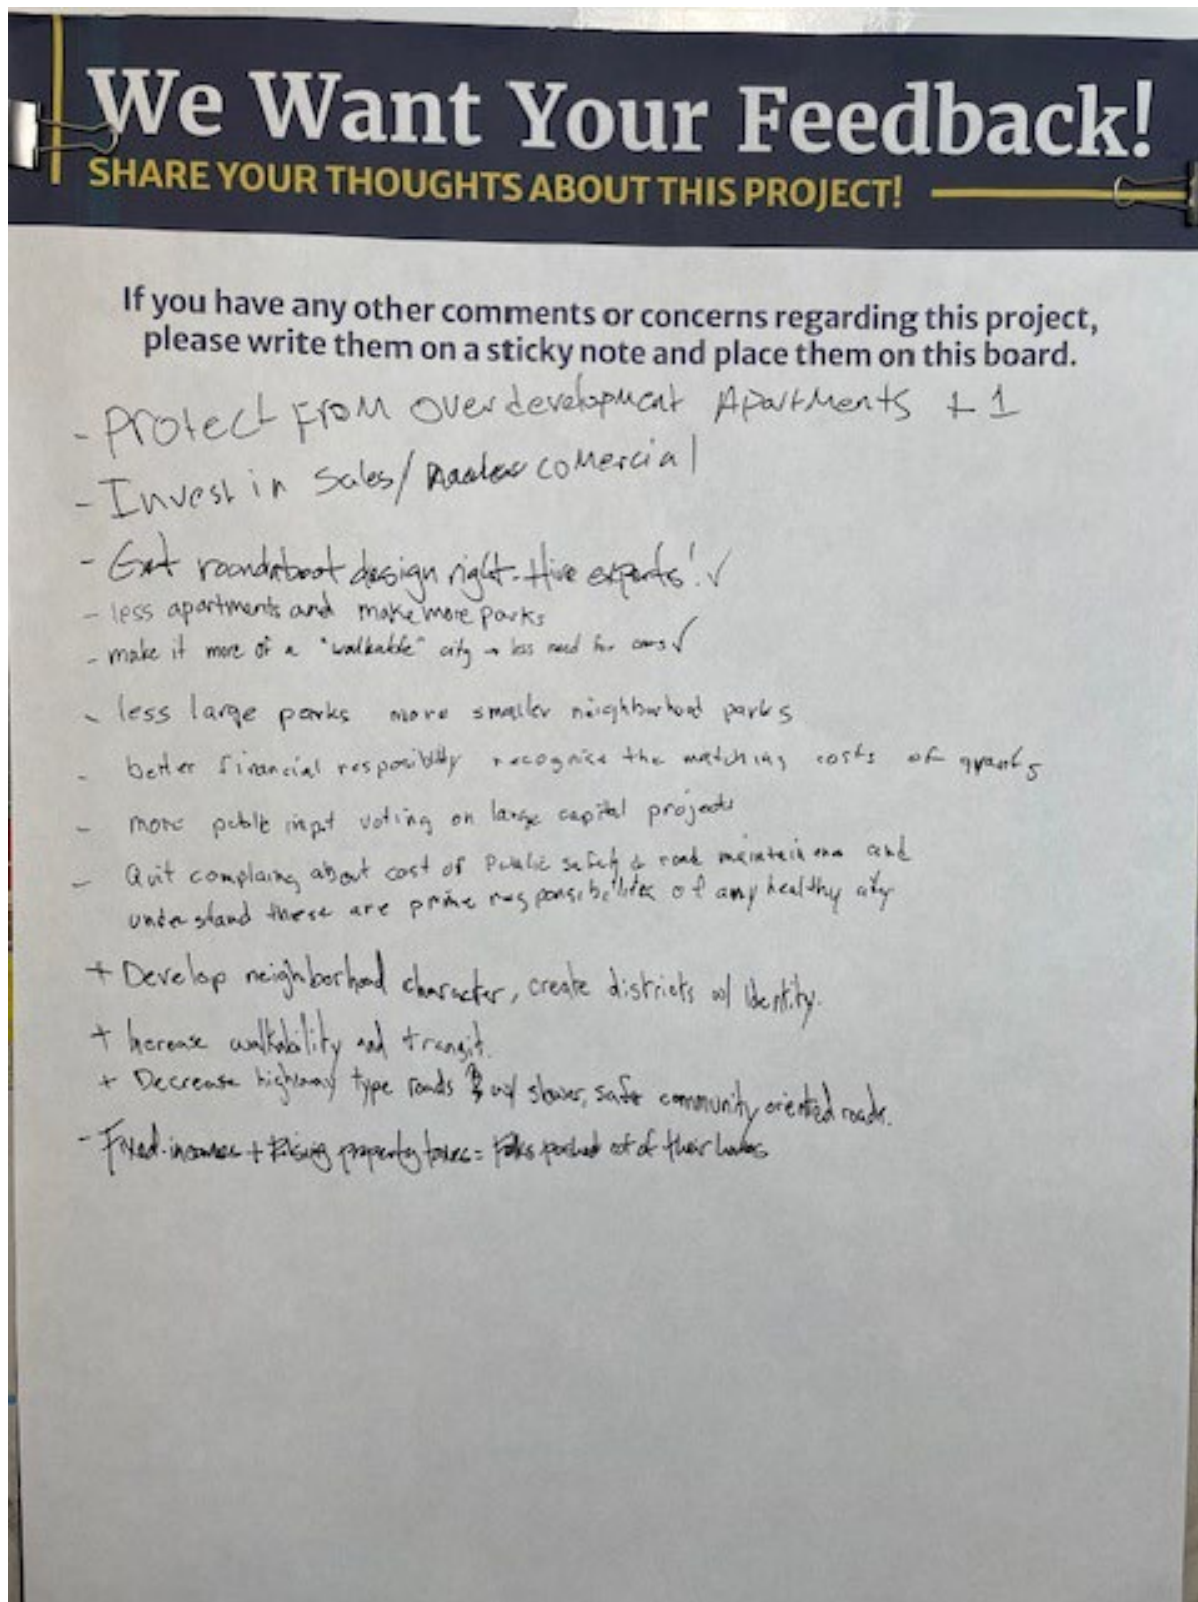 We Want Your Feedback!
SHARE YOUR THOUGHTS ABOUT THIS PROJECT!
If you have any other comments or concerns regarding this project,
please write them on a sticky note and place them on this board.
- Protect From Overdevelopment Apartments +1
- Invest in Sales/ comercial
- Get roundabout design right. Hire experts! ✓
- less apartments and make more parks
- make it more of a "walkable" city → less need for cars ✓
- less large parks more smaller neighborhood parks
- better financial resposiblity recognise the matching costs of grants
- more public inpt voting on large capital projects
- Quit complaing about cost of Public safety & road and
understand these are prime responsibilities of any healthy city
+ Develop neighborhood character, create districts w/ Identity.
+ Increase walkability and transit.
+ Decrease highway type roads w/ slower, safer community oriented roads.
- Fixed-incomes + Rising property taxes = Folks pushed out of their homes